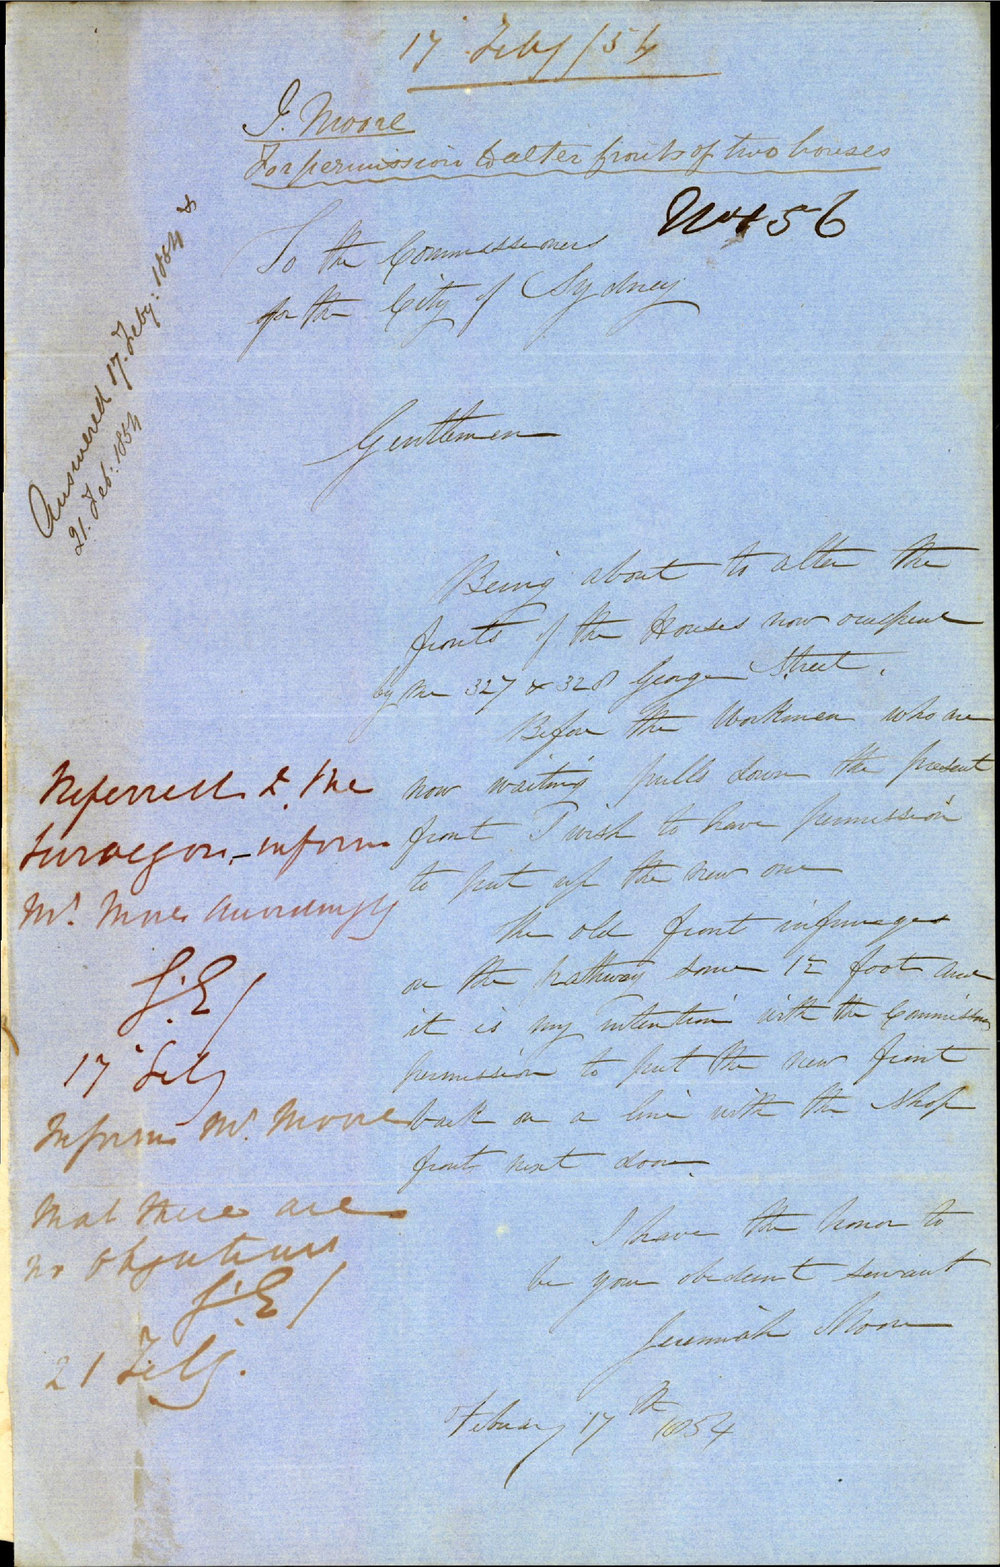 17 Feby /54
J. Moore
For permission to alter fronts of two houses
No 456
To the Commissioners
for the City of Sydney
Answered 17. Feby: 1854 &
21. Feb: 1854
Gentlemen
Being about to alter the
fronts of the Houses now occupied
by me 327 & 328 George Street.
Before the Workmen who are
now waiting pulls down the present
front I wish to have permission
to put up the new one
The old front infringes
on the pathway some 12 foot and
it is my intention with the Commissioners
permission to put the new front
back on a line with the shop
front next door.
I have the honor to
be your obedient servant
Jeremiah Moore
February 17th 1854
Referred to the
Surveyor, – inform
Mr. Moore accordingly
G.E/
17 Feby
Inform Mr. Moore
that there are
no objections
G.E/
21 Feby.